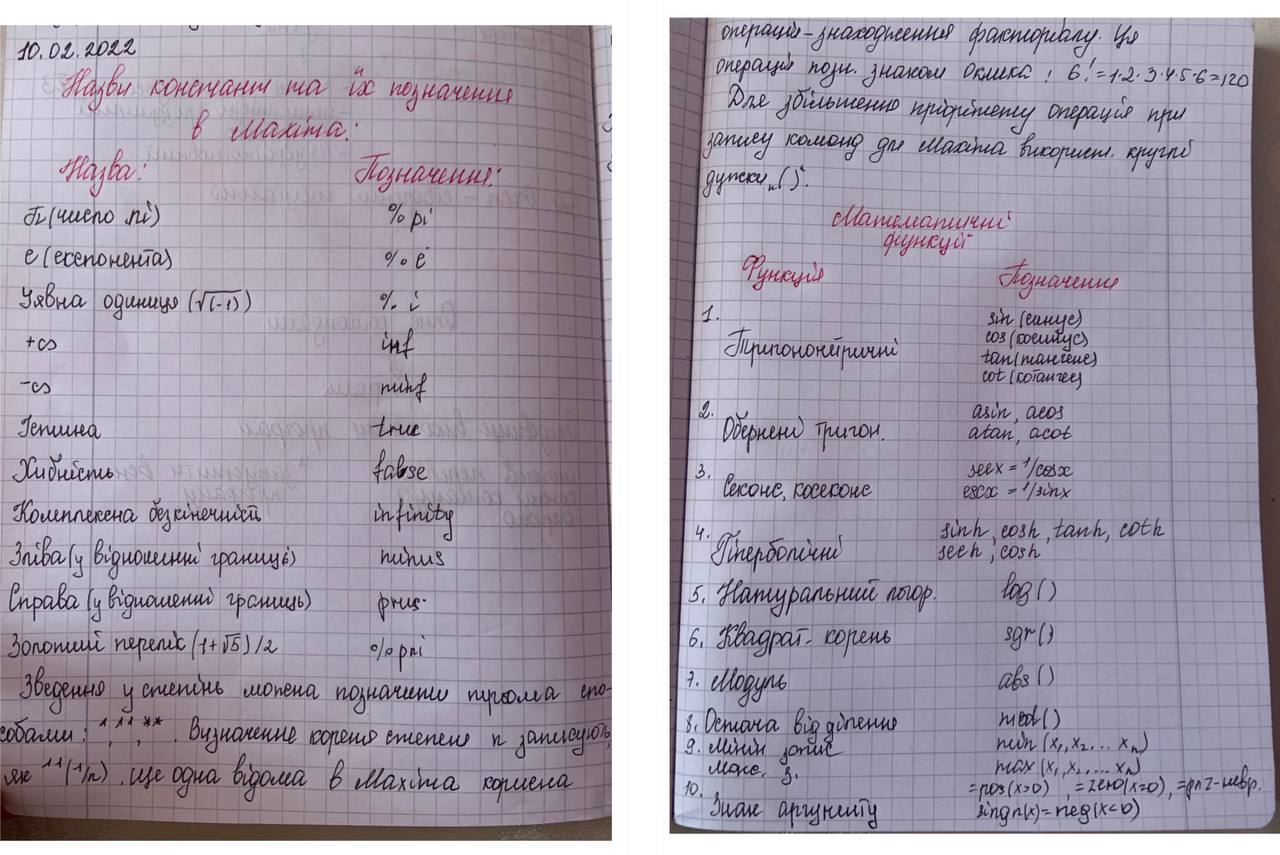 10.02.2022
Назви констант та їх позначення
в Maxima:
Назва: Позначення:
π (число пі) %pi
e (експонента) %e
Уявна одиниця (√(-1)) %i
+∞ inf
-∞ minf
Істина true
Хибність false
Комплексна безкінечність infinity
Зліва (у відношенні границі) minus
Справа (у відношенні границь) prus
Золотий перелік (1+√5)/2 %phi
Зведення у степінь можна позначати трьома спо-
собами: ^, ^^, **. Визначення кореня степеня n записують,
як ^^(1/n). ще одна відома в Maxima корисна
операція - знаходження факторіалу. Ця
операція позн. знаком оклика ! 6!=1·2·3·4·5·6=120
Для збільшення пріорітету операція при
запису команд для Maxima використ. круглі
дужки „()".
Математичні
функції
Функція Позначення
1.
Тригонометричні
sin (синус)
cos (косинус)
tan (тангенс)
cot (котангес)
2.
Обернені тригон.
asin, acos
atan, acot
3.
Секонс, косеконс
secx = 1/cosx
escx = 1/sinx
4.
Гіперболічні
sinh, cosh, tanh, coth
sech, cosh
5. Натуральний логор. log()
6. Квадрат. корень sgr()
7. Модуль abs()
8. Остача від ділення mod()
9. Мінім запис min (x₁, x₂... xₙ)
Макс. з. max (x₁, x₂... xₙ)
10. =pos(x>0), =zero(x=0), =pnz-невр.
Знак аргументу singn(x)=neg(x<0)